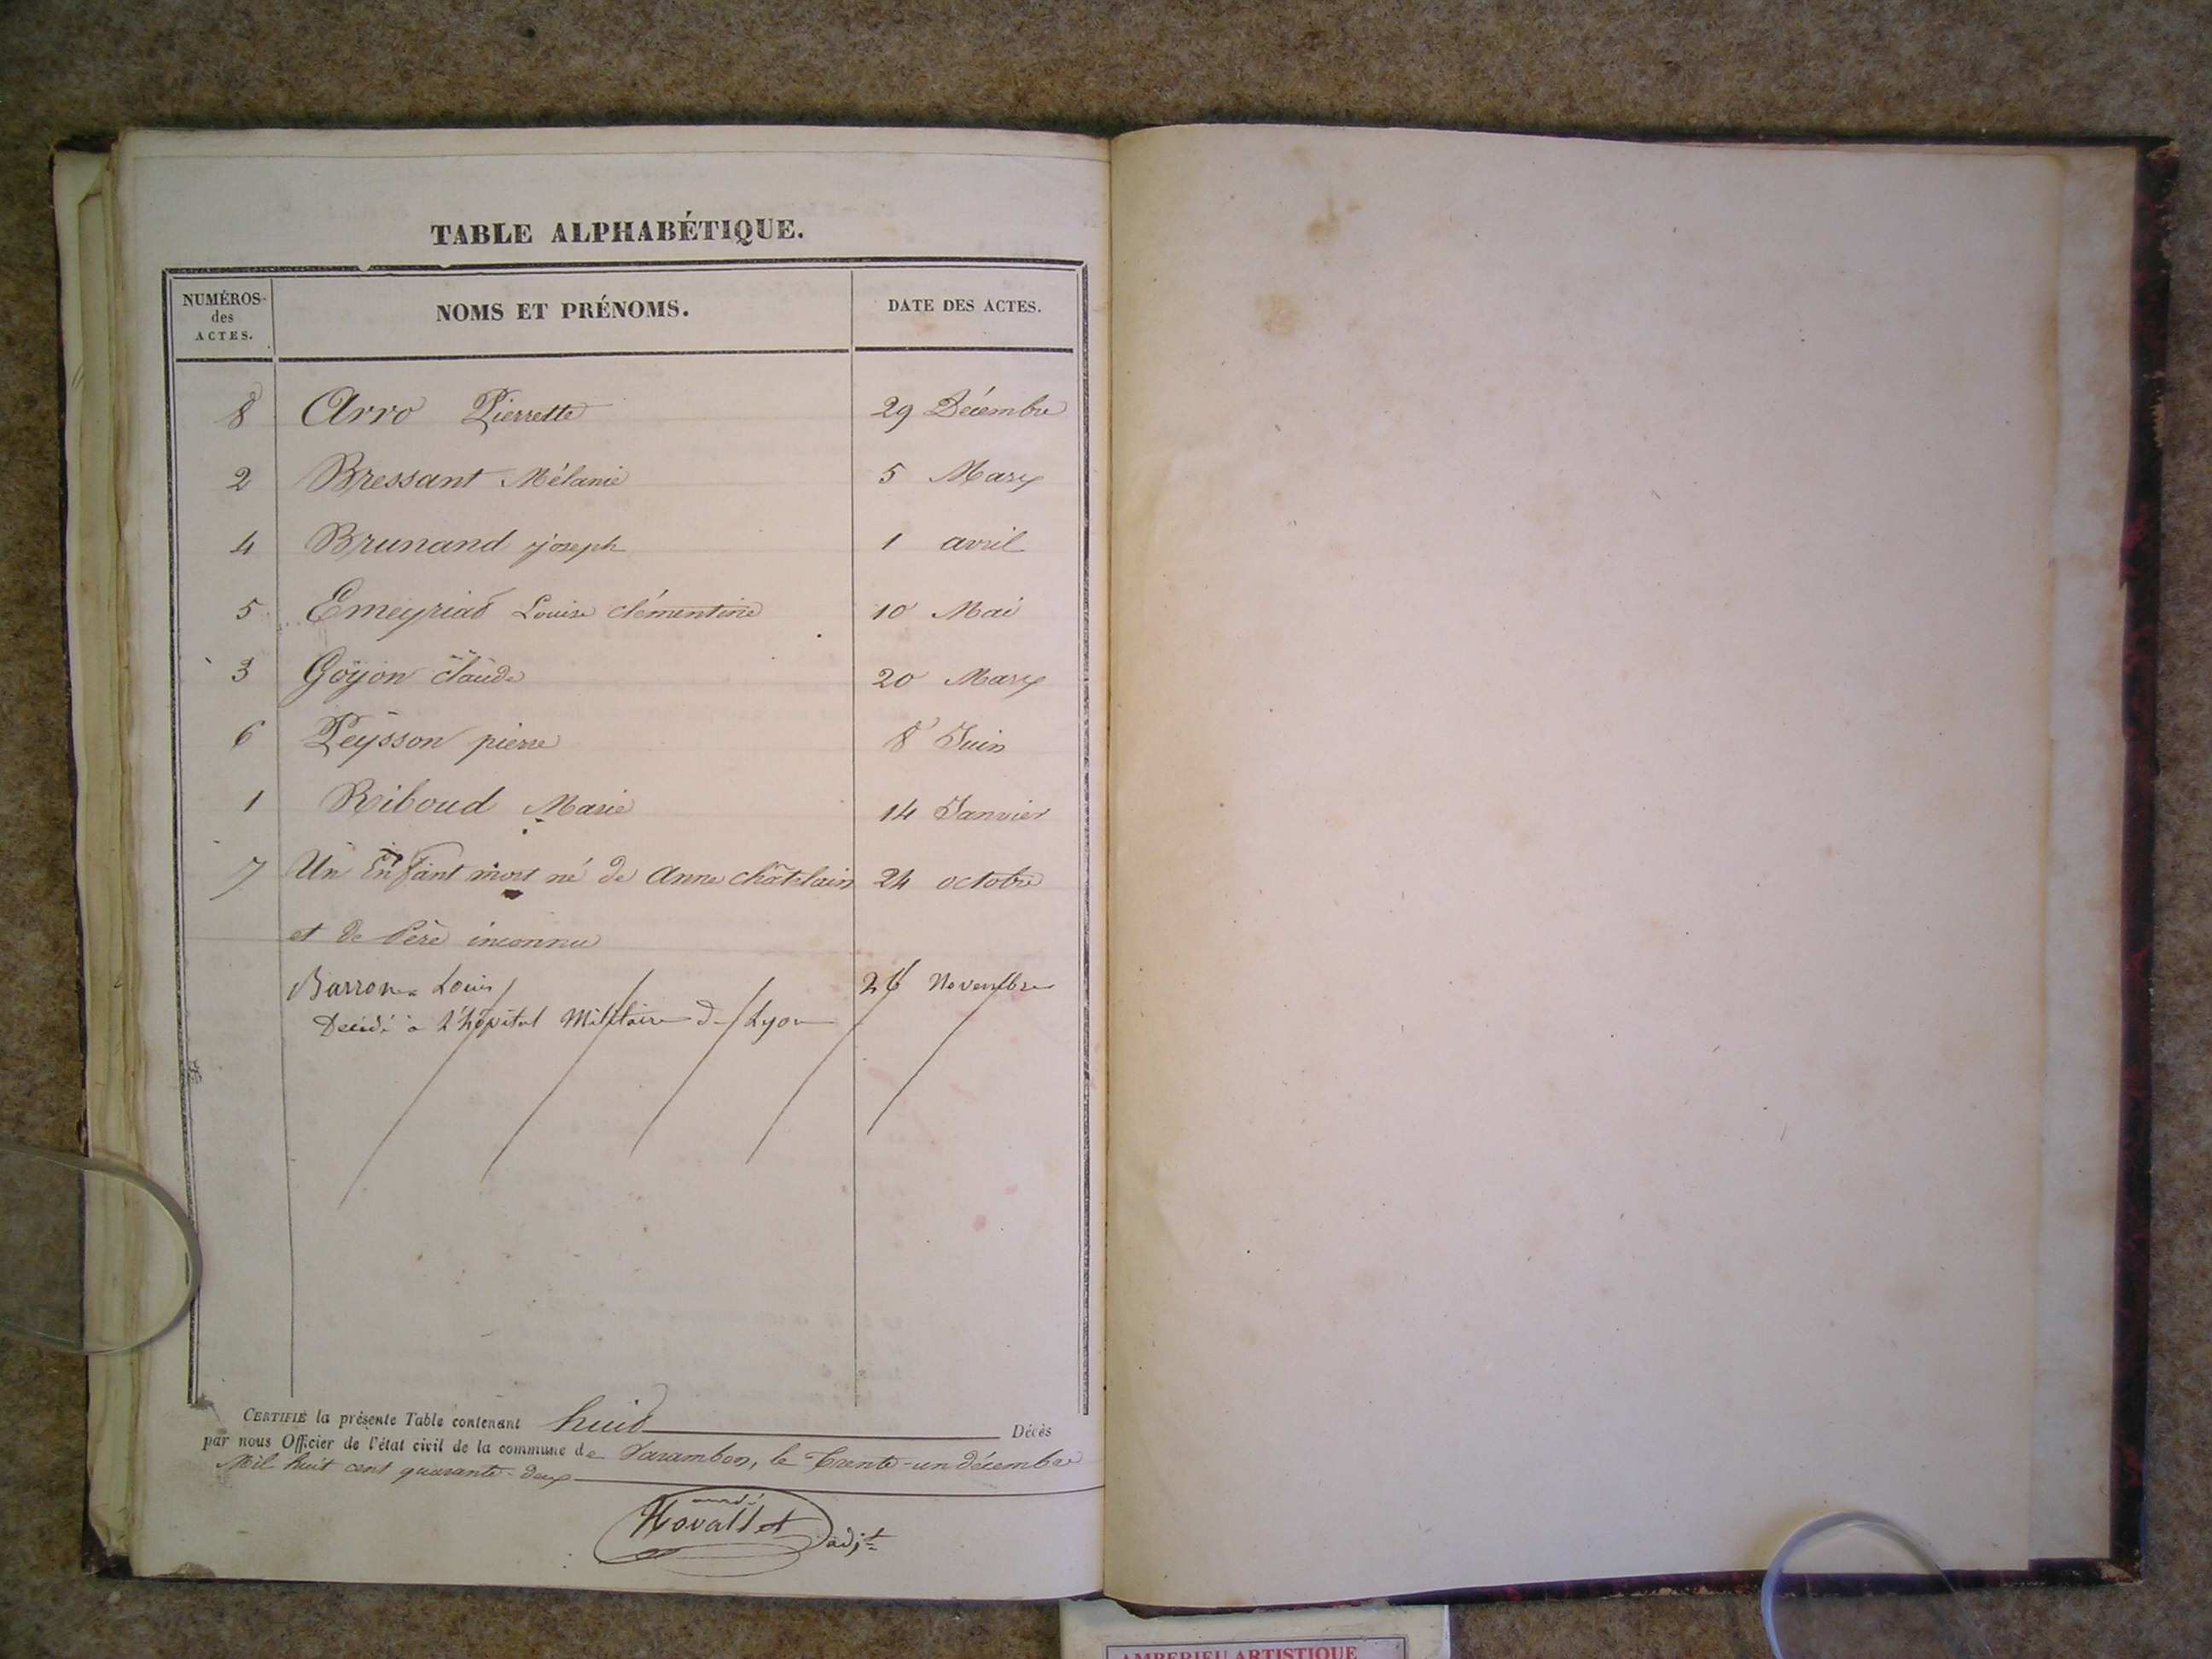 TABLE ALPHABÉTIQUE.
NUMÉROS des ACTES. NOMS ET PRÉNOMS. DATE DES ACTES.
8 Arro Pierrette 29 Décembre
2 Bressant Mélanie 5 Mars
4 Brunand joseph 1 avril
5 Emeyriat Louise Clémentine 10 Mai
3 Goÿon Claude 20 Mars
6 Peÿsson pierre 8 Juin
1 Riboud Marie 14 Janvier
7 Un Enfant mort né de Anne Châtelain 24 octobre
et de Père inconnu
Barron Louis 26 Novembre
Décédé à l'hôpital Militaire de Lyon
CERTIFIÉ la présente Table contenant huit Décès
par nous Officier de l'état civil de la commune de Varambon, le Trente-un décembre
Mil huit cent quarante-deux
adjt
AMBERIEU ARTISTIQUE